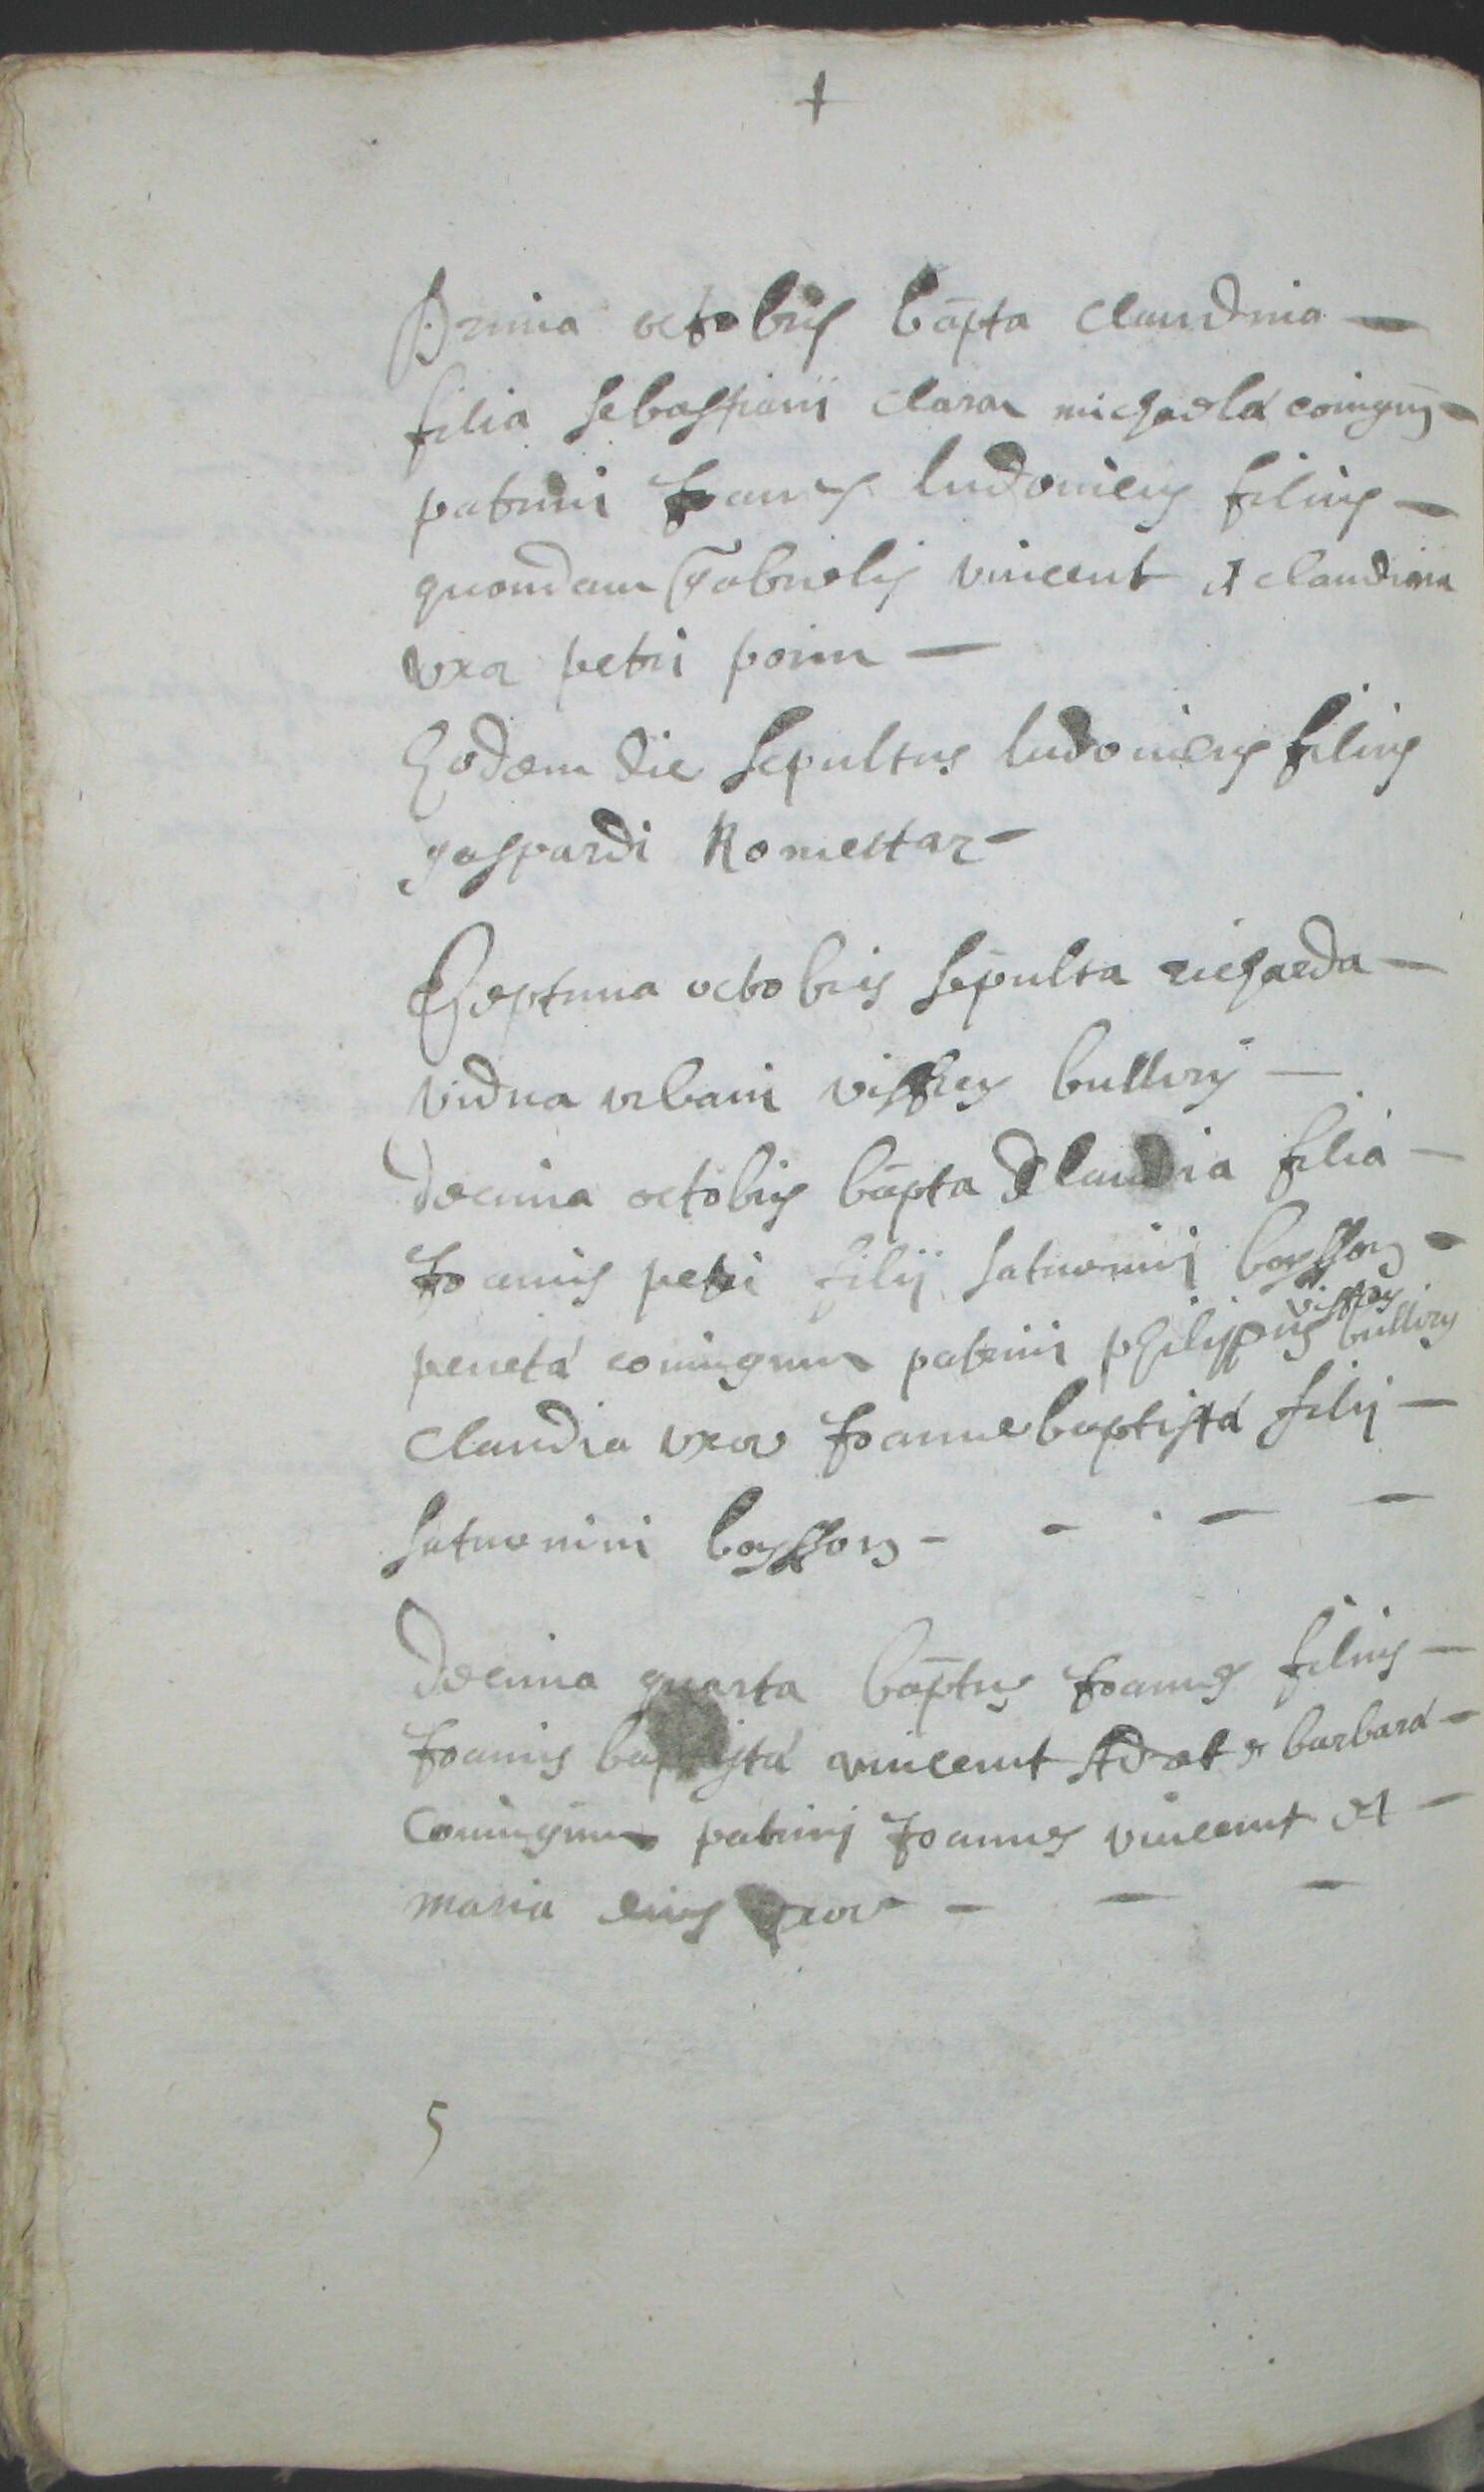 +
Prima octobris bāpta claudina —
filia sebastiani claraz michaelæ coniugū —
patrini Joannes ludovicus filius —
quondam Gabrielis vincent et claudina
vxor petri
Eodem die sepultus ludovicus filius
gaspardi Romestaz —
Septima octobris sepulta richarda —
vidua vrbani viffrey bulliny —
decima octobris bāpta Claudia filia —
Joannis petri filij saturnini boysson —
peretæ coniugum patrini philippus viffrey bulliny
Claudia vxor Joannebaptistæ filij —
saturnini boysson — — — —
decima quarta bāptus Joannes filius —
Joannis baptistæ vincent et barbaræ —
Coniugum patrini Joannes vincent et —
maria eius vxor — — —
5